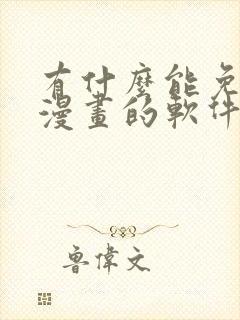 有什麼能免
漫畫的軟件
魯偉文